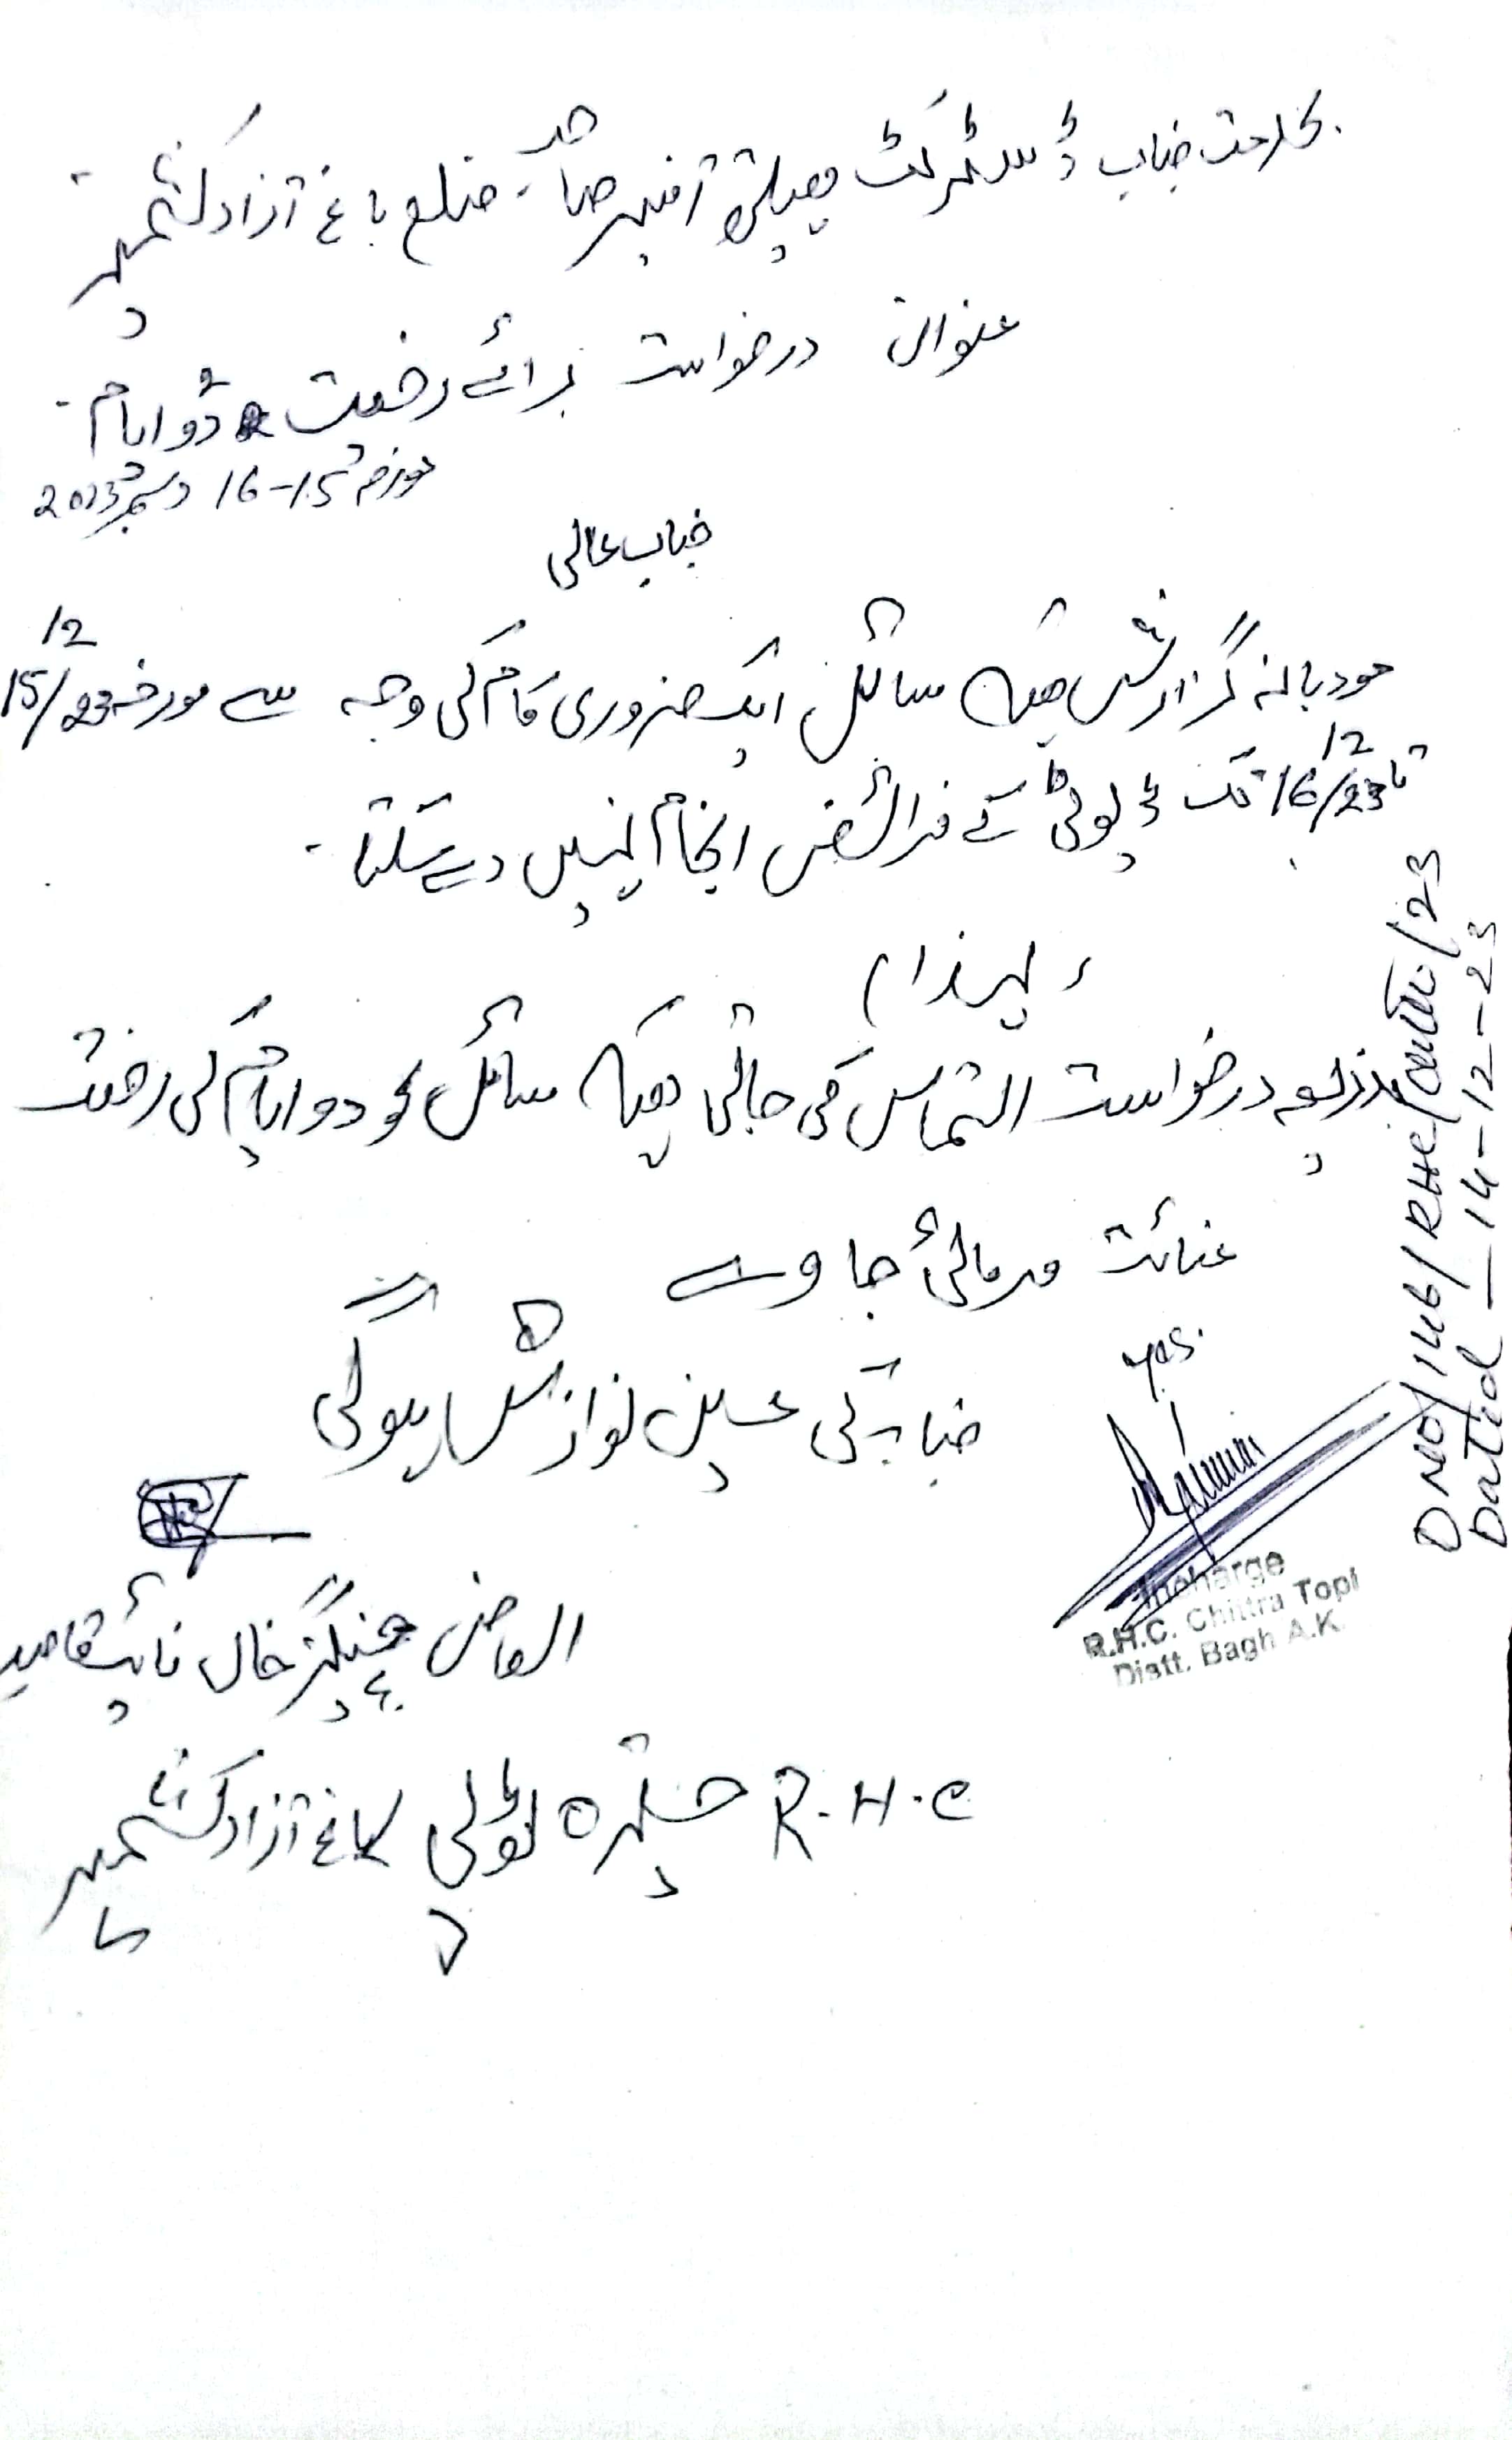 بخدمت جناب ڈسٹرکٹ ہیلتھ آفیسر صاحب ضلع باغ آزاد کشمیر
عنوان درخواست برائے رخصت دو ایام ۔
مورخہ 15-16 دسمبر 2023
جناب عالی
مودبانہ گزارش ہیکہ سائل ایک ضروری کام کی وجہ سے مورخہ 15/12/23
تا 16/12/23 تک ڈیوٹی کے فرائض انجام نہیں دے سکتا ۔
لہذا
بذریعہ درخواست التماس کی جاتی ہیکہ سائل کو دو ایام کی رخصت
عنائت فرمائی جاوے
جناب کی عین نوازش ہوگی
العارض چنگیز خان نائب قاصد
R.H.C چتره ٹوپی باغ آزاد کشمیر
yes.
Incharge
R.H.C. Chittra Topi
Distt. Bagh A.K.
D No/146/RHC/ /23
Dated _14-12-23